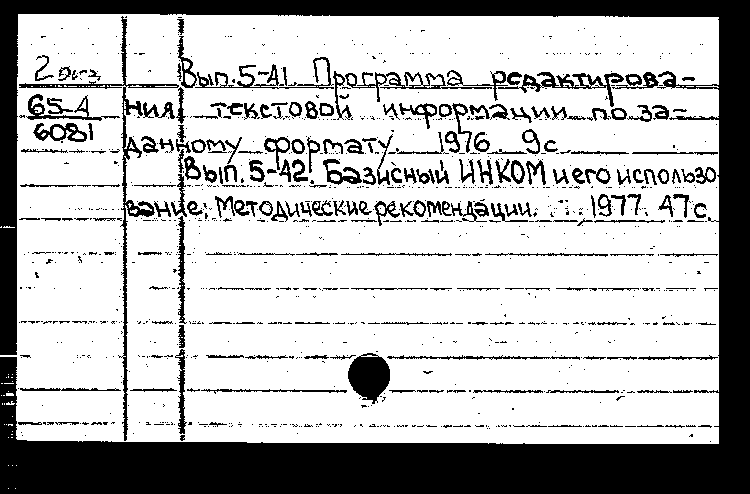 2 экз
65-4
6081
Вып.5-41. Программа редактирова-
ния текстовой информации по за-
данному формату. 1976. 9с.
Вып.5-42. Базисный ИНКОМ и его использо
вание: Методические рекомендации. 1977. 47с.